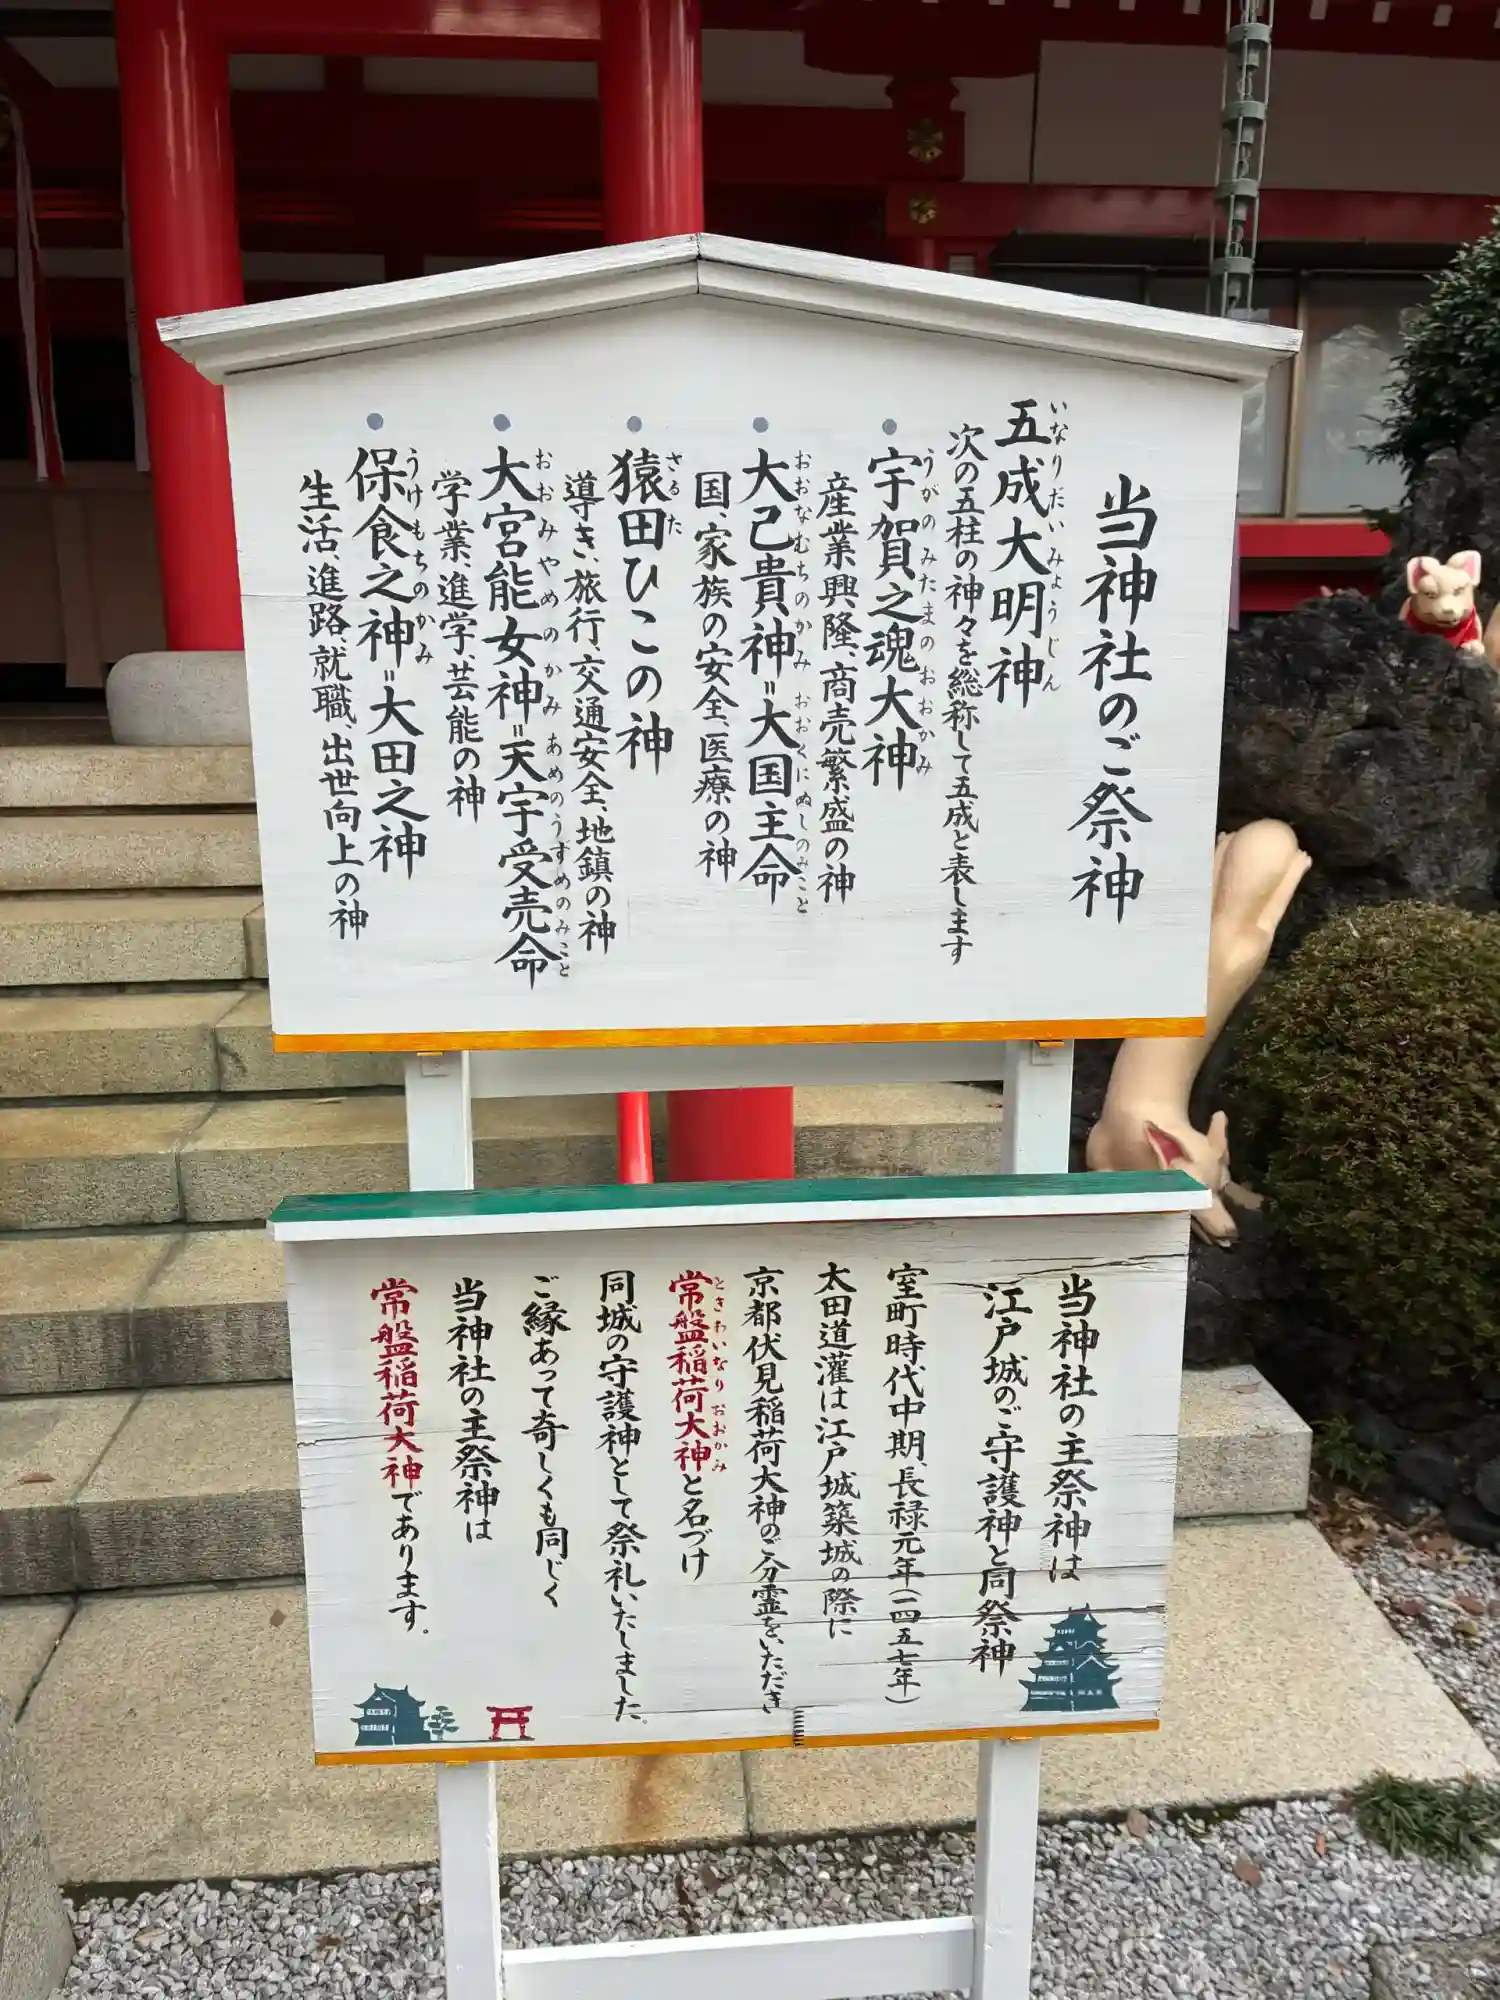 当神社のご祭神
五成大明神
いなりだいみょうじん
次の五柱の神々を総称して五成と表します
宇賀之魂大神
うがのみたまのおおかみ
産業興隆、商売繁盛の神
大己貴神=大国主命
おおなむちのかみ おおくにぬしのみこと
国、家族の安全、医療の神
猿田ひこの神
さるた
導き、旅行、交通安全、地鎮の神
大宮能女神=天宇受売命
おおみやめのかみ あめのうずめのみこと
学業、進学、芸能の神
保食之神=大田之神
うけもちのかみ
生活、進路、就職、出世向上の神
当神社の主祭神は
江戸城のご守護神と同祭神
室町時代中期、長禄元年(一四五七年)
太田道灌は江戸城築城の際に
京都伏見稲荷大神のご分霊をいただき
常盤稲荷大神と名づけ
ときわいなりおおかみ
同城の守護神として祭礼いたしました。
ご縁あって奇しくも同じく
当神社の主祭神は
常盤稲荷大神であります。